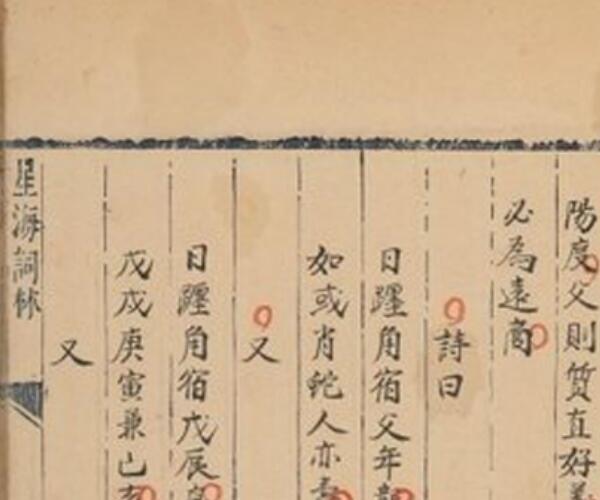 陽度父則質直好
必為遠商
詩曰
日躔角宿父年
如或肖蛇人亦
又
日躔角宿戊辰
戊戌庚寅兼己
又
星海詞林